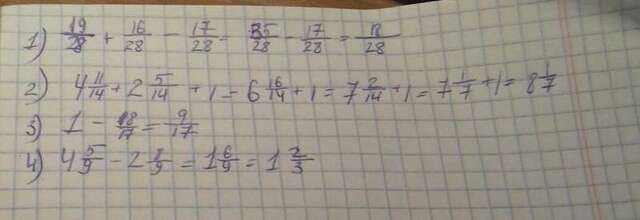 1) 19/28 + 16/28 - 17/28 - 35/28 - 17/28 = 18/28
2) 4 11/14 + 2 5/14 + 1 - 6 16/14 + 1 = 7 2/14 + 1 = 7 1/7 + 1 = 8 1/7
3) 1 - 18/17 = 9/17
4) 4 5/9 - 2 8/9 = 1 6/9 = 1 2/3